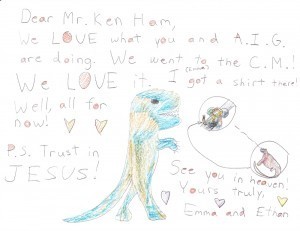 Dear Mr. Ken Ham,
We LOVE what you and A.I.G.
are doing. We went to the C.M.!
We LOVE it. I got a shirt there!
Well, all for
now!
P.S. Trust in
JESUS!
See you in heaven!
Yours truly,
Emma and Ethan